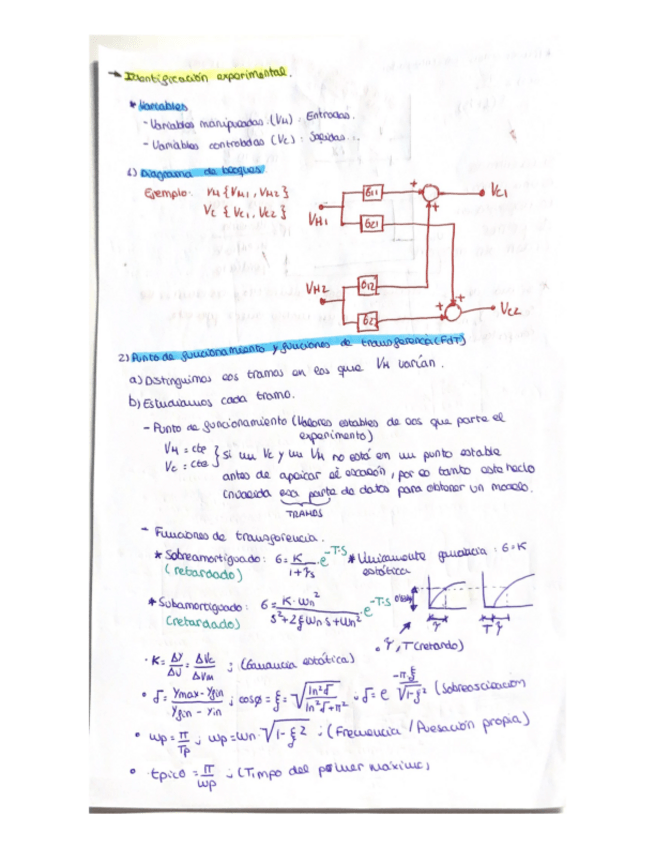 → Identificación experimental.
* Variables
- Variables manipuladas (VM). Entradas.
- Variables controladas (VC): Salidas...
1) Diagrama de bloques
Ejemplo: VM {VM1, VM2}
VC {VC1, VC2}
VM1 G11 G21 + + VC1
VM2 G12 G22 + + VC2
2) Punto de funcionamiento y funciones de transferencia (FdT)
a) Distinguimos los tramos en los que VM varían.
b) Estudiamos cada tramo.
- Punto de funcionamiento (Valores estables de los que parte el
experimento)
VM = cte
VC = cte
} si un VC y un VM no está en un punto estable
antes de aplicar el escalón, por lo tanto este hecho
invalida esa parte de datos para obtener un modelo.
TRAMOS
- Funciones de transferencia.
* Sobreamortiguado: G = K / (1+τs) · e^-T·S
(retardado)
* Unicamente ganancia : G = K
estática
* Subamortiguado: G = K·Wn² / (S²+2ξWn s+Wn²) · e^-T·S
(retardado)
0'63
τ
T τ
τ, T (retardo)
· K = ΔY/ΔU = ΔVC/ΔVM ; (Ganancia estática)
• δ = (Ymax - Yfin) / (Yfin - Yin) ; cosφ = ξ = √(ln²δ / (ln²δ+π²)) ; δ = e^(-πξ/√(1-ξ²)) (Sobreoscilación
• Wp = π/Tp ; Wp = Wn · √(1-ξ²) ; (Frecuencia / Pulsación propia)
• tpico = π/Wp ; (Timpo del primer máximo)